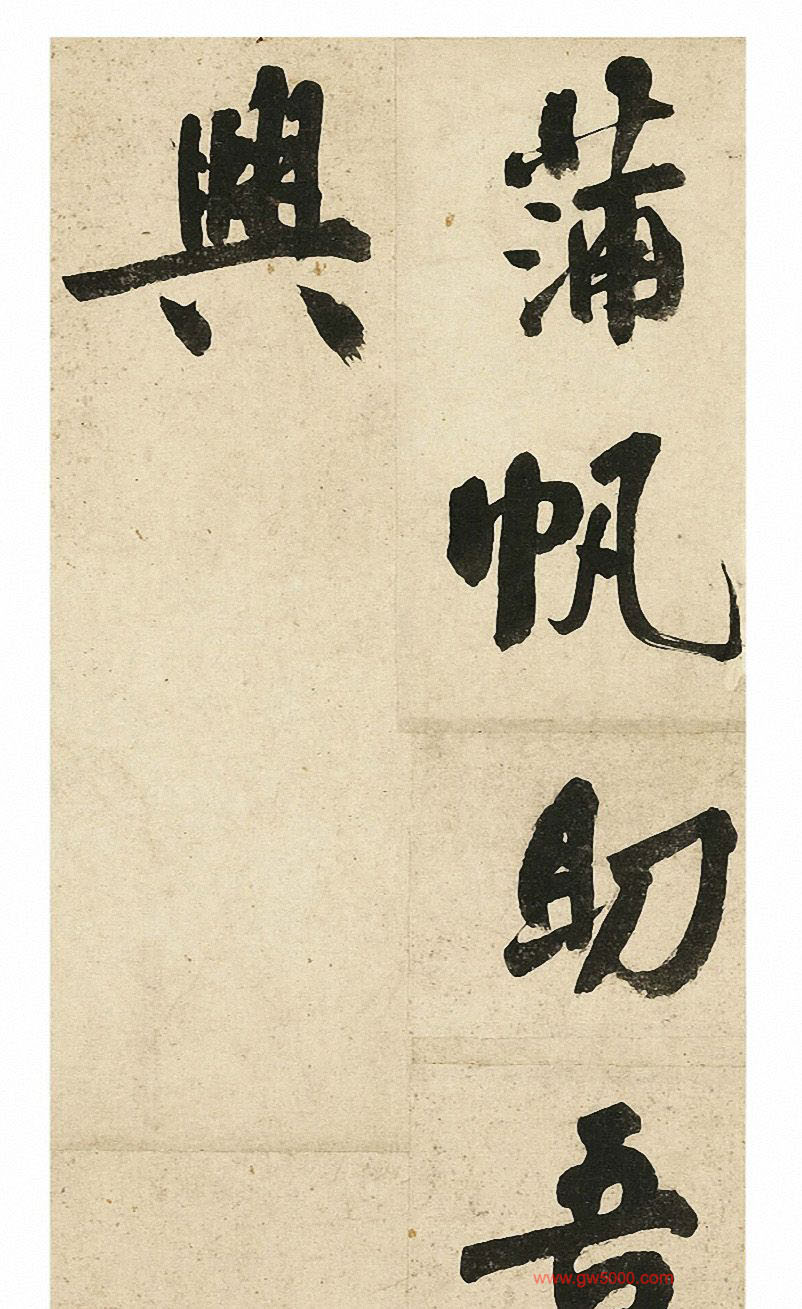 蒲帆助吾
興
www.gw5000.com